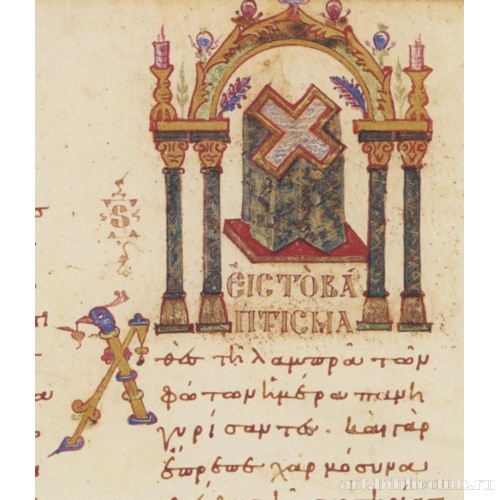 ΕΙC ΤῸ ΒΆ
ΠΤΙCΜΑ
Χθὲς τῆ λαμπρᾶ τῶν
φώτων ἡμέρα πανη
γυρίσαντες. καὶ γὰρ
χαρμόσυνα
art.biblioclub.ru